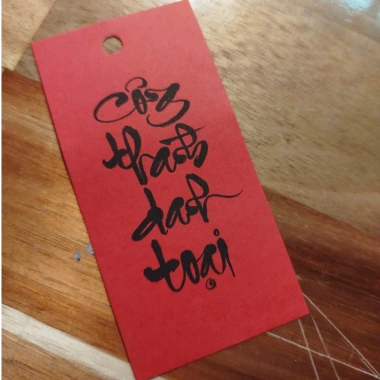 Công
thành
danh
toại